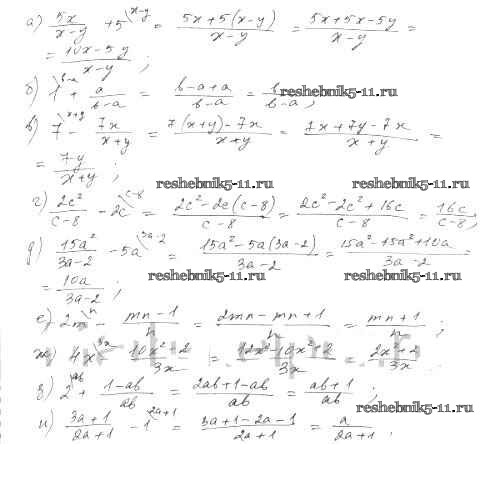 а) 5x/(x-y) + 5^(x-y) = (5x+5(x-y))/(x-y) = (5x+5x-5y)/(x-y) =
= (10x-5y)/(x-y) ;
б) 1^(b-a) + a/(b-a) = (b-a+a)/(b-a) = b/(b-a) ;
reshebnik5-11.ru
в) 7^(x+y) - 7x/(x+y) = (7(x+y)-7x)/(x+y) = (7x+7y-7x)/(x+y) =
= 7y/(x+y) ;
reshebnik5-11.ru
reshebnik5-11.ru
г) 2c²/(c-8) - 2c^(c-8) = (2c²-2c(c-8))/(c-8) = (2c²-2c²+16c)/(c-8) = 16c/(c-8) ;
д) 15a²/(3a-2) - 5a^(3a-2) = (15a²-5a(3a-2))/(3a-2) = (15a²-15a²+10a)/(3a-2) =
= 10a/(3a-2) ;
reshebnik5-11.ru
reshebnik5-11.ru
е) 2m^n - (mn-1)/n = (2mn-mn+1)/n = (mn+1)/n ;
ж) 4x^(3x) - (10x²-2)/3x = (12x²-10x²+2)/3x = (2x²+2)/3x
з) 2^(ab) + (1-ab)/ab = (2ab+1-ab)/ab = (ab+1)/ab ;
reshebnik5-11.ru
и) (3a+1)/(2a+1) - 1^(2a+1) = (3a+1-2a-1)/(2a+1) = a/(2a+1) .